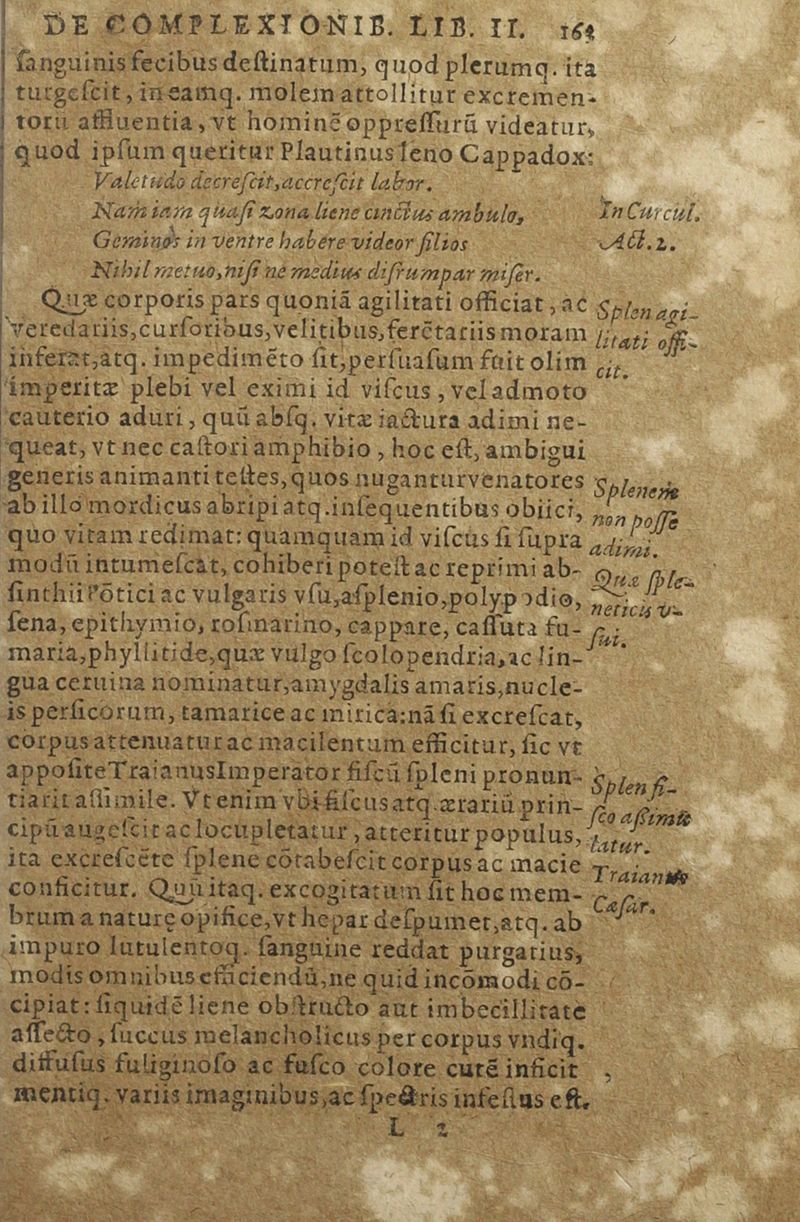 DE COMPLEXIONIB. LIB. II.
ſanguinis fecibus deſtinatum, quod plerumq. ita
turgeſcit, in eamq. molem attollitur excremen-
torū affluentia, vt hominē oppreſſurū videatur,
quod ipſum queritur Plautinus leno Cappadox:
Valetudo decreſcit, accreſcit labor.
Nam iam quaſi zona liene cinctus ambulo,
In Curcul.
Geminos in ventre habere videor filios
Act. 2.
Nihil metuo, niſi ne medius diſrumpar miſer.
Quæ corporis pars quoniā agilitati officiat, ac
veredariis, curſoribus, velitibus, ferētariis moram
inferat, atq. impedimēto ſit, perſuaſum fuit olim
Splen agi-
litati offi-
cit.
imperitæ plebi vel eximi id viſcus, vel admoto
cauterio aduri, quū abſq. vitæ iactura adimi ne-
queat, vt nec caſtori amphibio, hoc eſt, ambigui
generis animanti teſtes, quos nugantur venatores
ab illo mordicus abripi atq. inſequentibus obiici,
quo vitam redimat: quamquam id viſcus ſi ſupra
Splenem
non poſſe
adimi.
modū intumeſcat, cohiberi poteſt ac reprimi ab-
ſinthii Pōtici ac vulgaris vſu, aſplenio, polypodio,
ſena, epithymio, roſmarino, cappare, caſſuta fu-
Quæ ſple-
neticis v-
ſui.
maria, phyllitide, quæ vulgo ſcolopendria, ac lin-
gua ceruina nominatur, amygdalis amaris, nucle-
is perſicorum, tamarice ac mirica: nā ſi excreſcat,
corpus attenuatur ac macilentum efficitur, ſic vt
appoſite Traianus Imperator fiſcū ſpleni pronun-
tiarit aſſimile. Vt enim vbi fiſcus atq. ærariū prin-
cipū augeſcit ac locupletatur, atteritur populus,
Splen fi-
ſco aſſimu
latur.
ita excreſcēte ſplene cōtabeſcit corpus ac macie
conficitur. Quū itaq. excogitatum ſit hoc mem-
Traianus
Cæſar.
brum a naturę opifice, vt hepar deſpumet, atq. ab
impuro lutulentoq. ſanguine reddat purgatius,
modis omnibus efficiendū, ne quid incōmodi cō-
cipiat: ſiquidē liene obſtructo aut imbecillitate
affecto, ſuccus melancholicus per corpus vndiq.
diffuſus fuliginoſo ac fuſco colore cutē inficit,
mentiq. variis imaginibus, ac ſpectris infeſtus eſt.
L 2